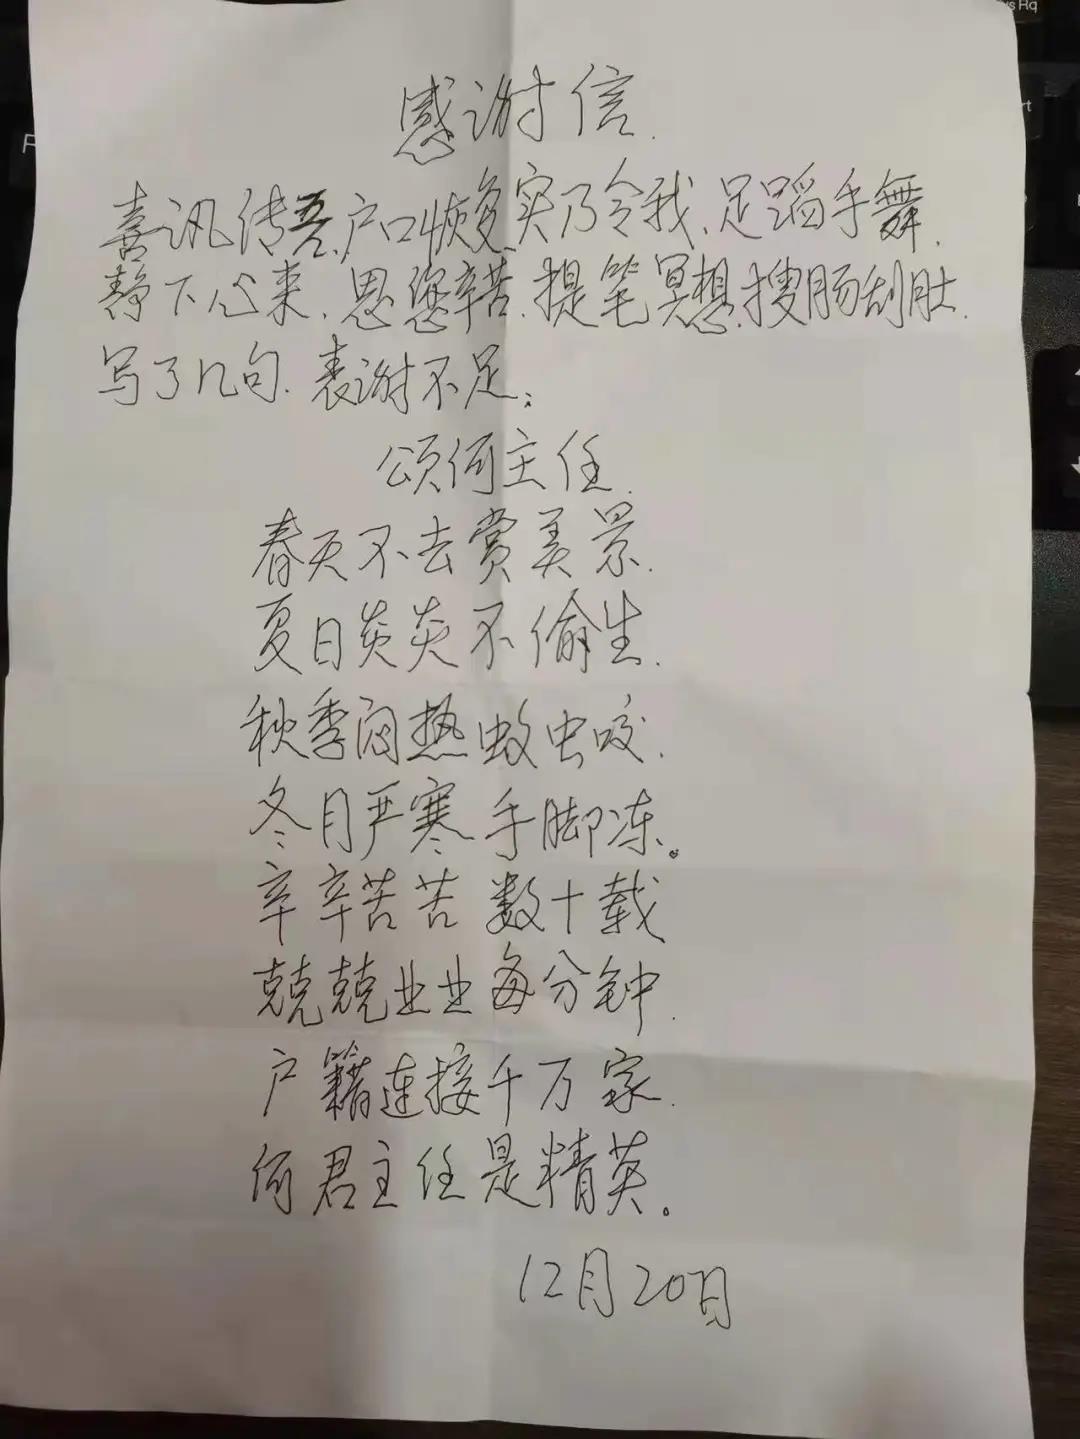 感谢信.
喜讯传吾.户口恢复.实乃令我.足蹈手舞.
静下心来.思您辛苦.提笔冥想.搜肠刮肚.
写了几句.表谢不足：
颂何主任.
春天不去赏美景.
夏日炎炎不偷生.
秋季闷热蚊虫咬.
冬月严寒手脚冻。
辛辛苦苦数十载
兢兢业业每分钟.
户籍连接千万家.
何君主任是精英。
12月20日